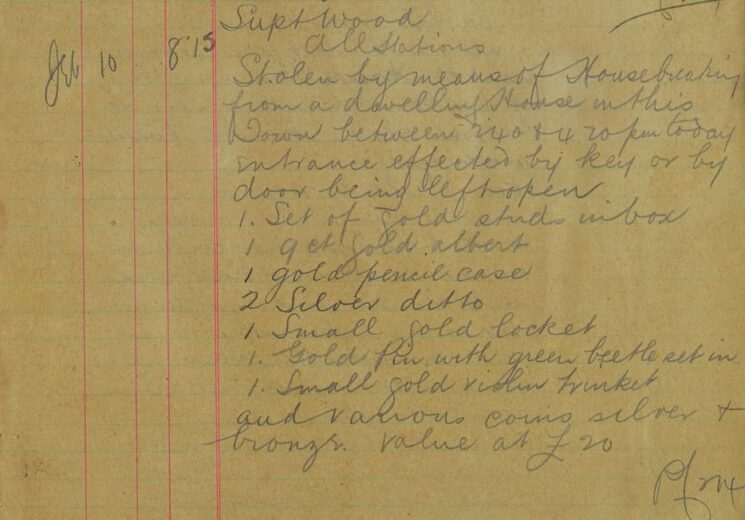 Supt Wood
All Stations
Feb 10 8.15
Stolen by means of Housebreaking
from a dwelling House in this
Town between 2 40 & 4 20 pm today
entrance effected by key or by
door being left open
1. Set of gold studs in box
1 9ct gold albert
1 gold pencil case
2 Silver ditto
1. Small gold locket
1. Gold Pin with green beetle set in
1. Small gold violin trinket
and various coins silver &
bronze. value at £ 20